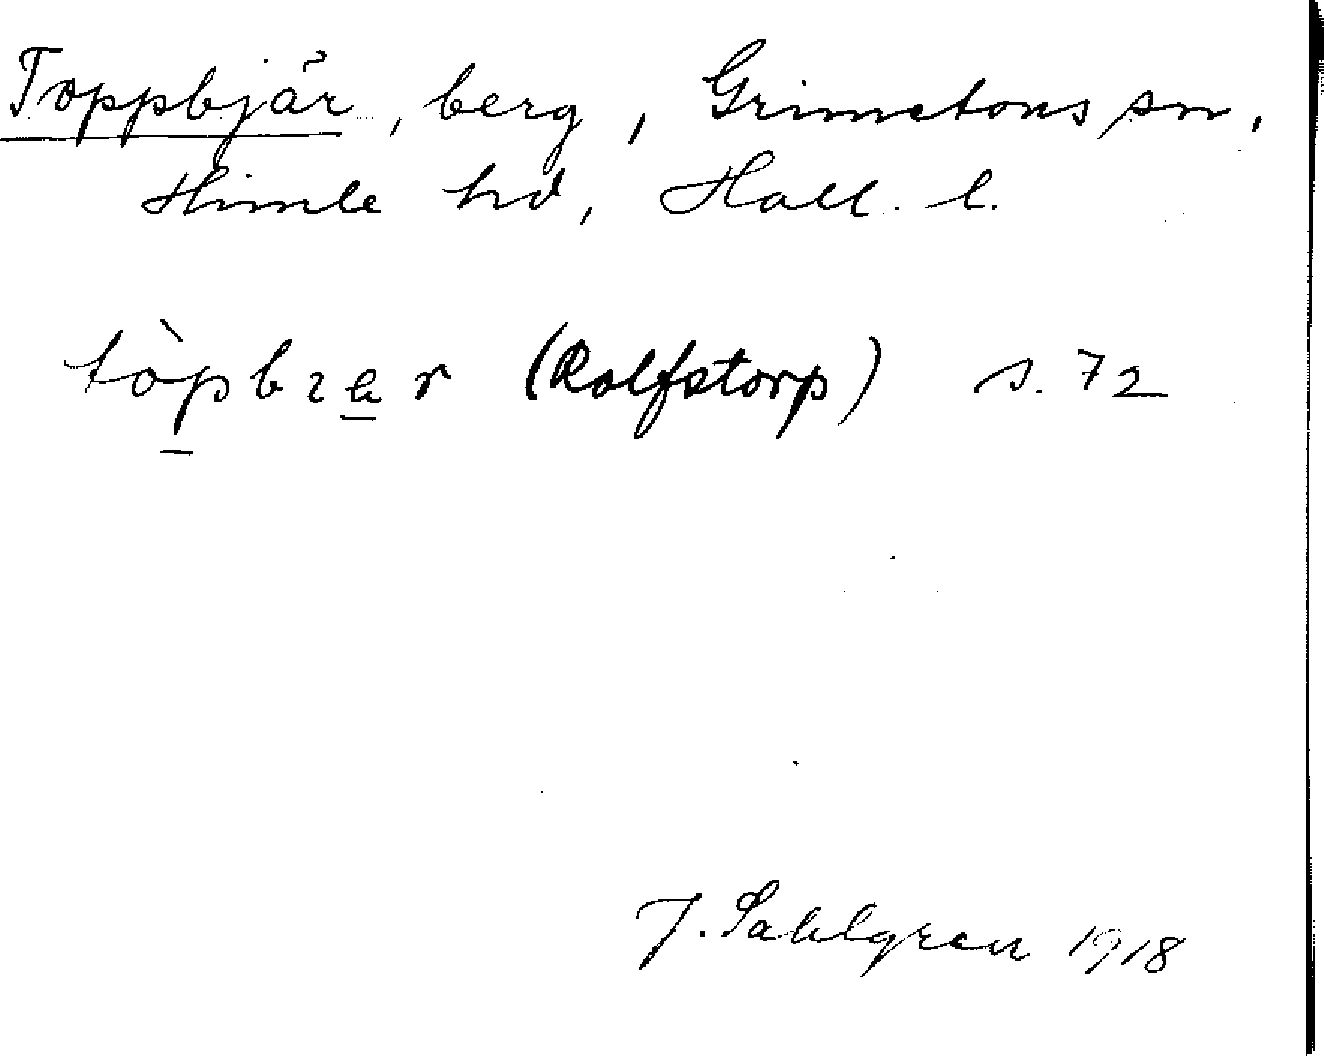 Toppbjär, berg, Grimetons sn,
Himle hd, Hall. l.
tòpbɿär (Rolfstorp) s. 72
J. Sahlgren 1918